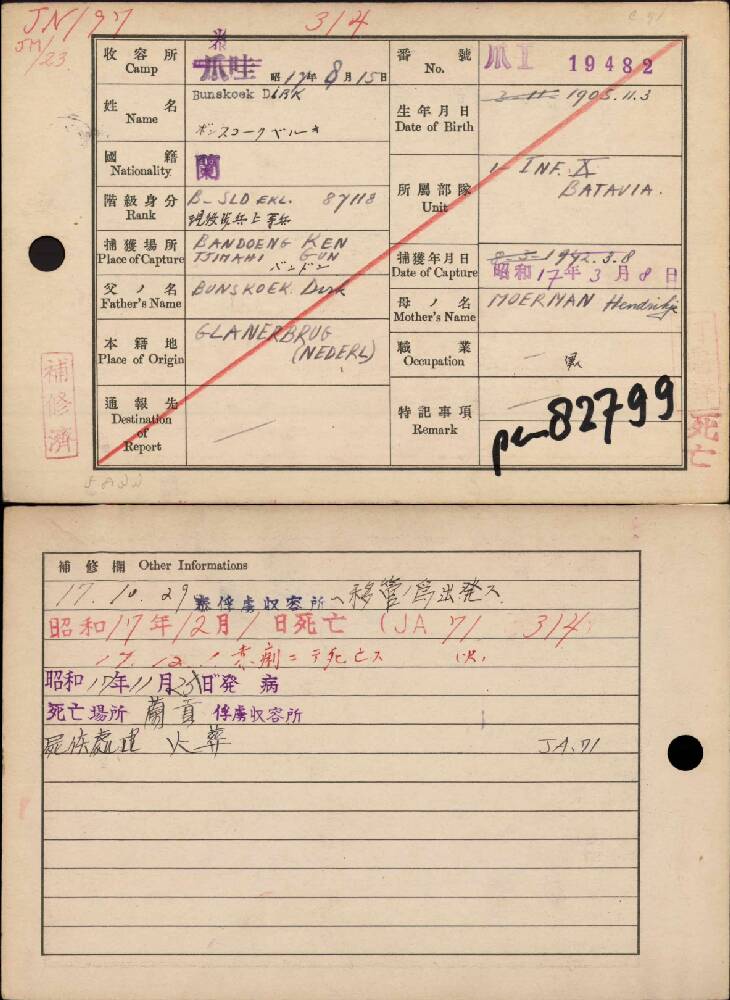 JN/97
314
JM/23
收容所 Camp 泰 爪哇 昭17年8月15日
番號 No. 爪I 19482
姓名 Name Bunskoek DIRK
生年月日 Date of Birth 3-11- 1905.11.3
國籍 Nationality 蘭
階級身分 Rank B- SLD EKL. 87118
所屬部隊 Unit INF. X
BATAVIA.
捕獲場所 Place of Capture BANDOENG KEN
TJIMAHI GUN
バンドン
捕獲年月日 Date of Capture 8-3- 1942.3.8
昭和17年3月8日
父ノ名 Father's Name BUNSKOEK. Dirk
母ノ名 Mother's Name MOERMAN Hendrikje
本籍地 Place of Origin GLANERBRUG
(NEDERL)
職業 Occupation
通報先 Destination of Report
特記事項 Remark
82799
補修濟
死亡
補修欄 Other Informations
17.10.29 泰俘虜収容所ヘ移管ノ爲出発ス
昭和17年12月1日死亡 (JA 71 314)
17.12.1 ニテ死亡ス
昭和17年11月25日発病
死亡場所 蘭貢 俘虜収容所
屍体處理 火葬 JA.71